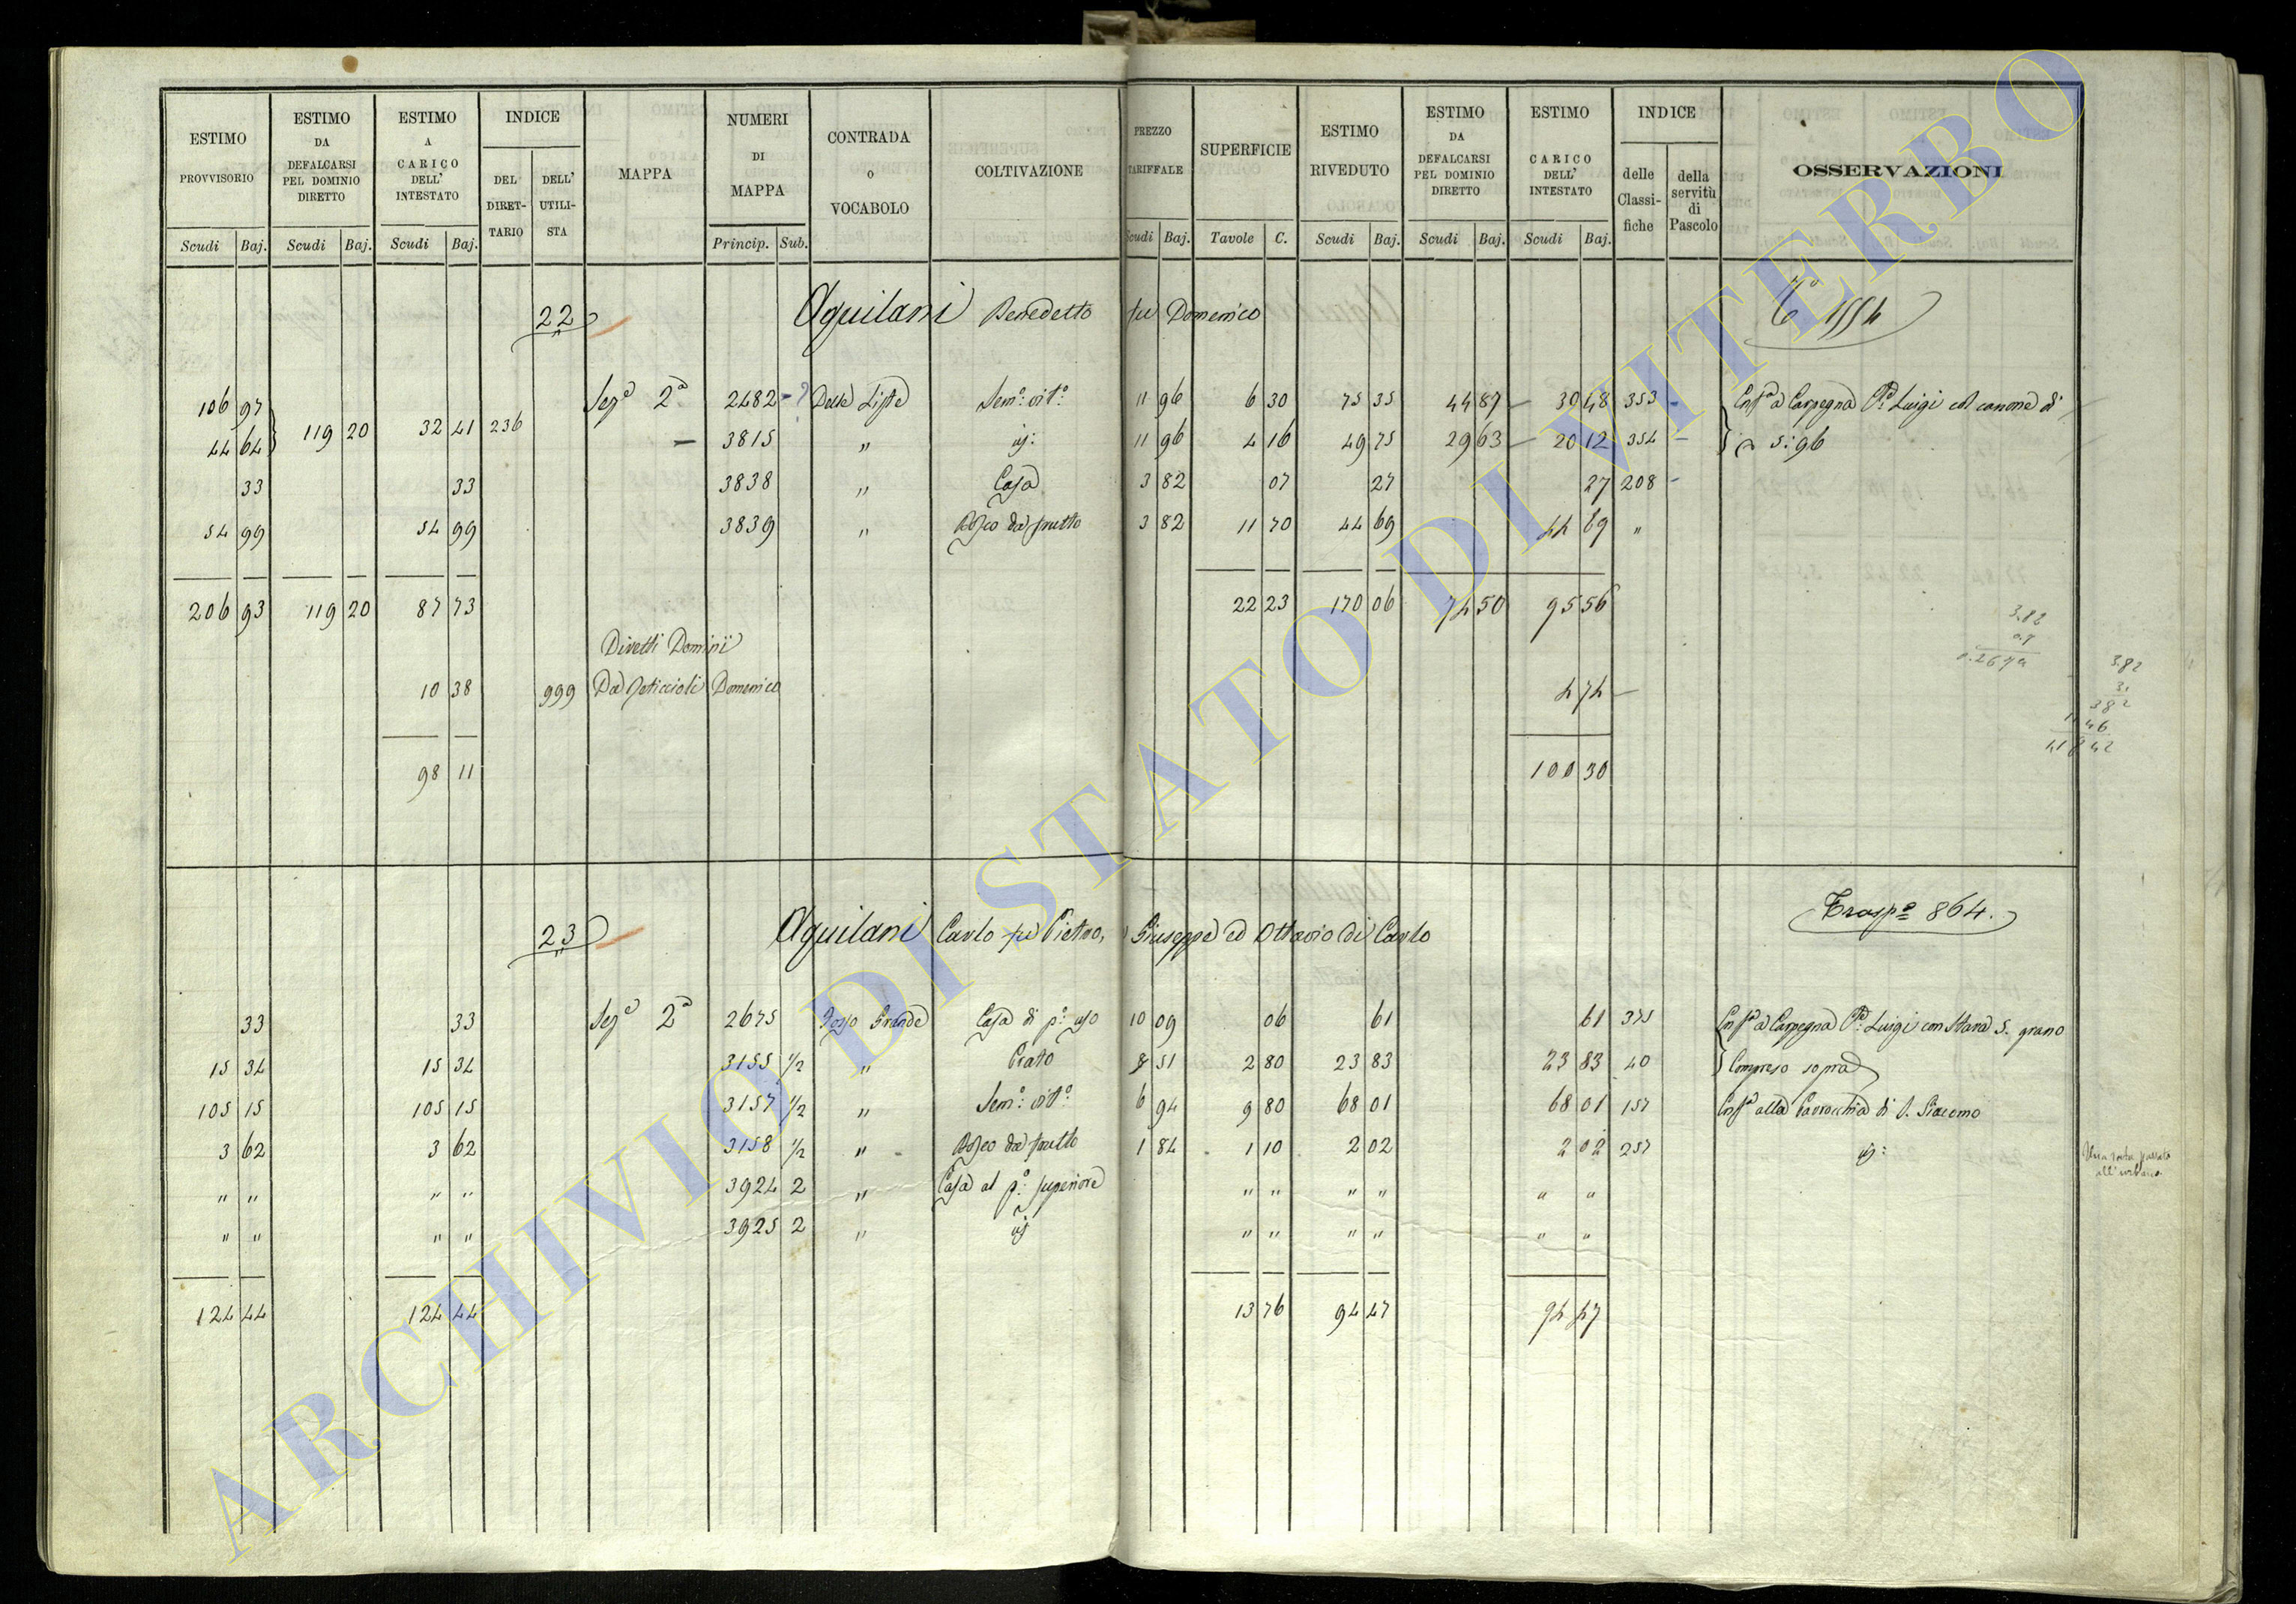 ESTIMO PROVVISORIO | ESTIMO DA DEFALCARSI PEL DOMINIO DIRETTO | ESTIMO A CARICO DELL' INTESTATO | INDICE | MAPPA | NUMERI DI MAPPA | CONTRADA O VOCABOLO | COLTIVAZIONE | PREZZO TARIFFALE | SUPERFICIE | ESTIMO RIVEDUTO | ESTIMO DA DEFALCARSI PEL DOMINIO DIRETTO | ESTIMO CARICO DELL' INTESTATO | INDICE | OSSERVAZIONI
DEL DIRETTARIO | DELL' UTILISTA | delle Classifiche | della servitù di Pascolo
Scudi Baj. | Scudi Baj. | Scudi Baj. | Princip. Sub. | Scudi Baj. | Tavole C. | Scudi Baj. | Scudi Baj. | Scudi Baj.
22 Aquilani Benedetto fu Domenico
106 97 | 119 20 | 32 41 | 236 | Sez.e 2a | 2482 - ? | Delle Liste | Sem.o vit.o | 11 96 | 6 30 | 75 35 | 44 87 | 30 48 | 353 | Enf.a a Carpegna P.e Luigi col canone di
44 64 | 3815 | " | id: | 11 96 | 4 16 | 49 75 | 29 63 | 20 12 | 354 | 5:96
33 | 33 | 3838 | " | Casa | 3 82 | 07 | 27 | 27 | 208
54 99 | 54 99 | 3839 | " | Bosco da frutto | 3 82 | 11 70 | 44 69 | 44 69 | "
206 93 | 119 20 | 87 73 | 22 23 | 170 06 | 74 50 | 95 56
Diretti Dominii
10 38 | 999 | Da Domenico | 4 74
98 11 | 100 30
3.82
3.82
382
11 46
Trasp.o 864.
23 Aquilani Carlo fu Pietro, Giuseppe ed Ottavio di Carlo
33 | 33 | Sez.e 2a | 2675 | Fosso Grande | Casa di p.o uso | 10 09 | 06 | 61 | 61 | 375 | Enf.a a Carpegna P.e Luigi con Stara 5. grano
15 34 | 15 34 | 3155 1/2 | " | Prato | 8 51 | 2 80 | 23 83 | 23 83 | 40 | Compreso sopra
105 15 | 105 15 | 3157 1/2 | " | Sem.o vit.o | 6 94 | 9 80 | 68 01 | 68 01 | 157 | Enf.a alla Parrocchia di S. Giacomo
3 62 | 3 62 | 3158 1/2 | " | Bosco da frutto | 1 84 | 1 10 | 2 02 | 2 02 | 257 | id:
" " | " " | 3924 2 | " | Casa al p.o superiore | " " | " " | " "
" " | " " | 3925 2 | " | id | " " | " " | " "
124 44 | 124 44 | 13 76 | 94 47 | 94 47
ARCHIVIO DI STATO DI VITERBO